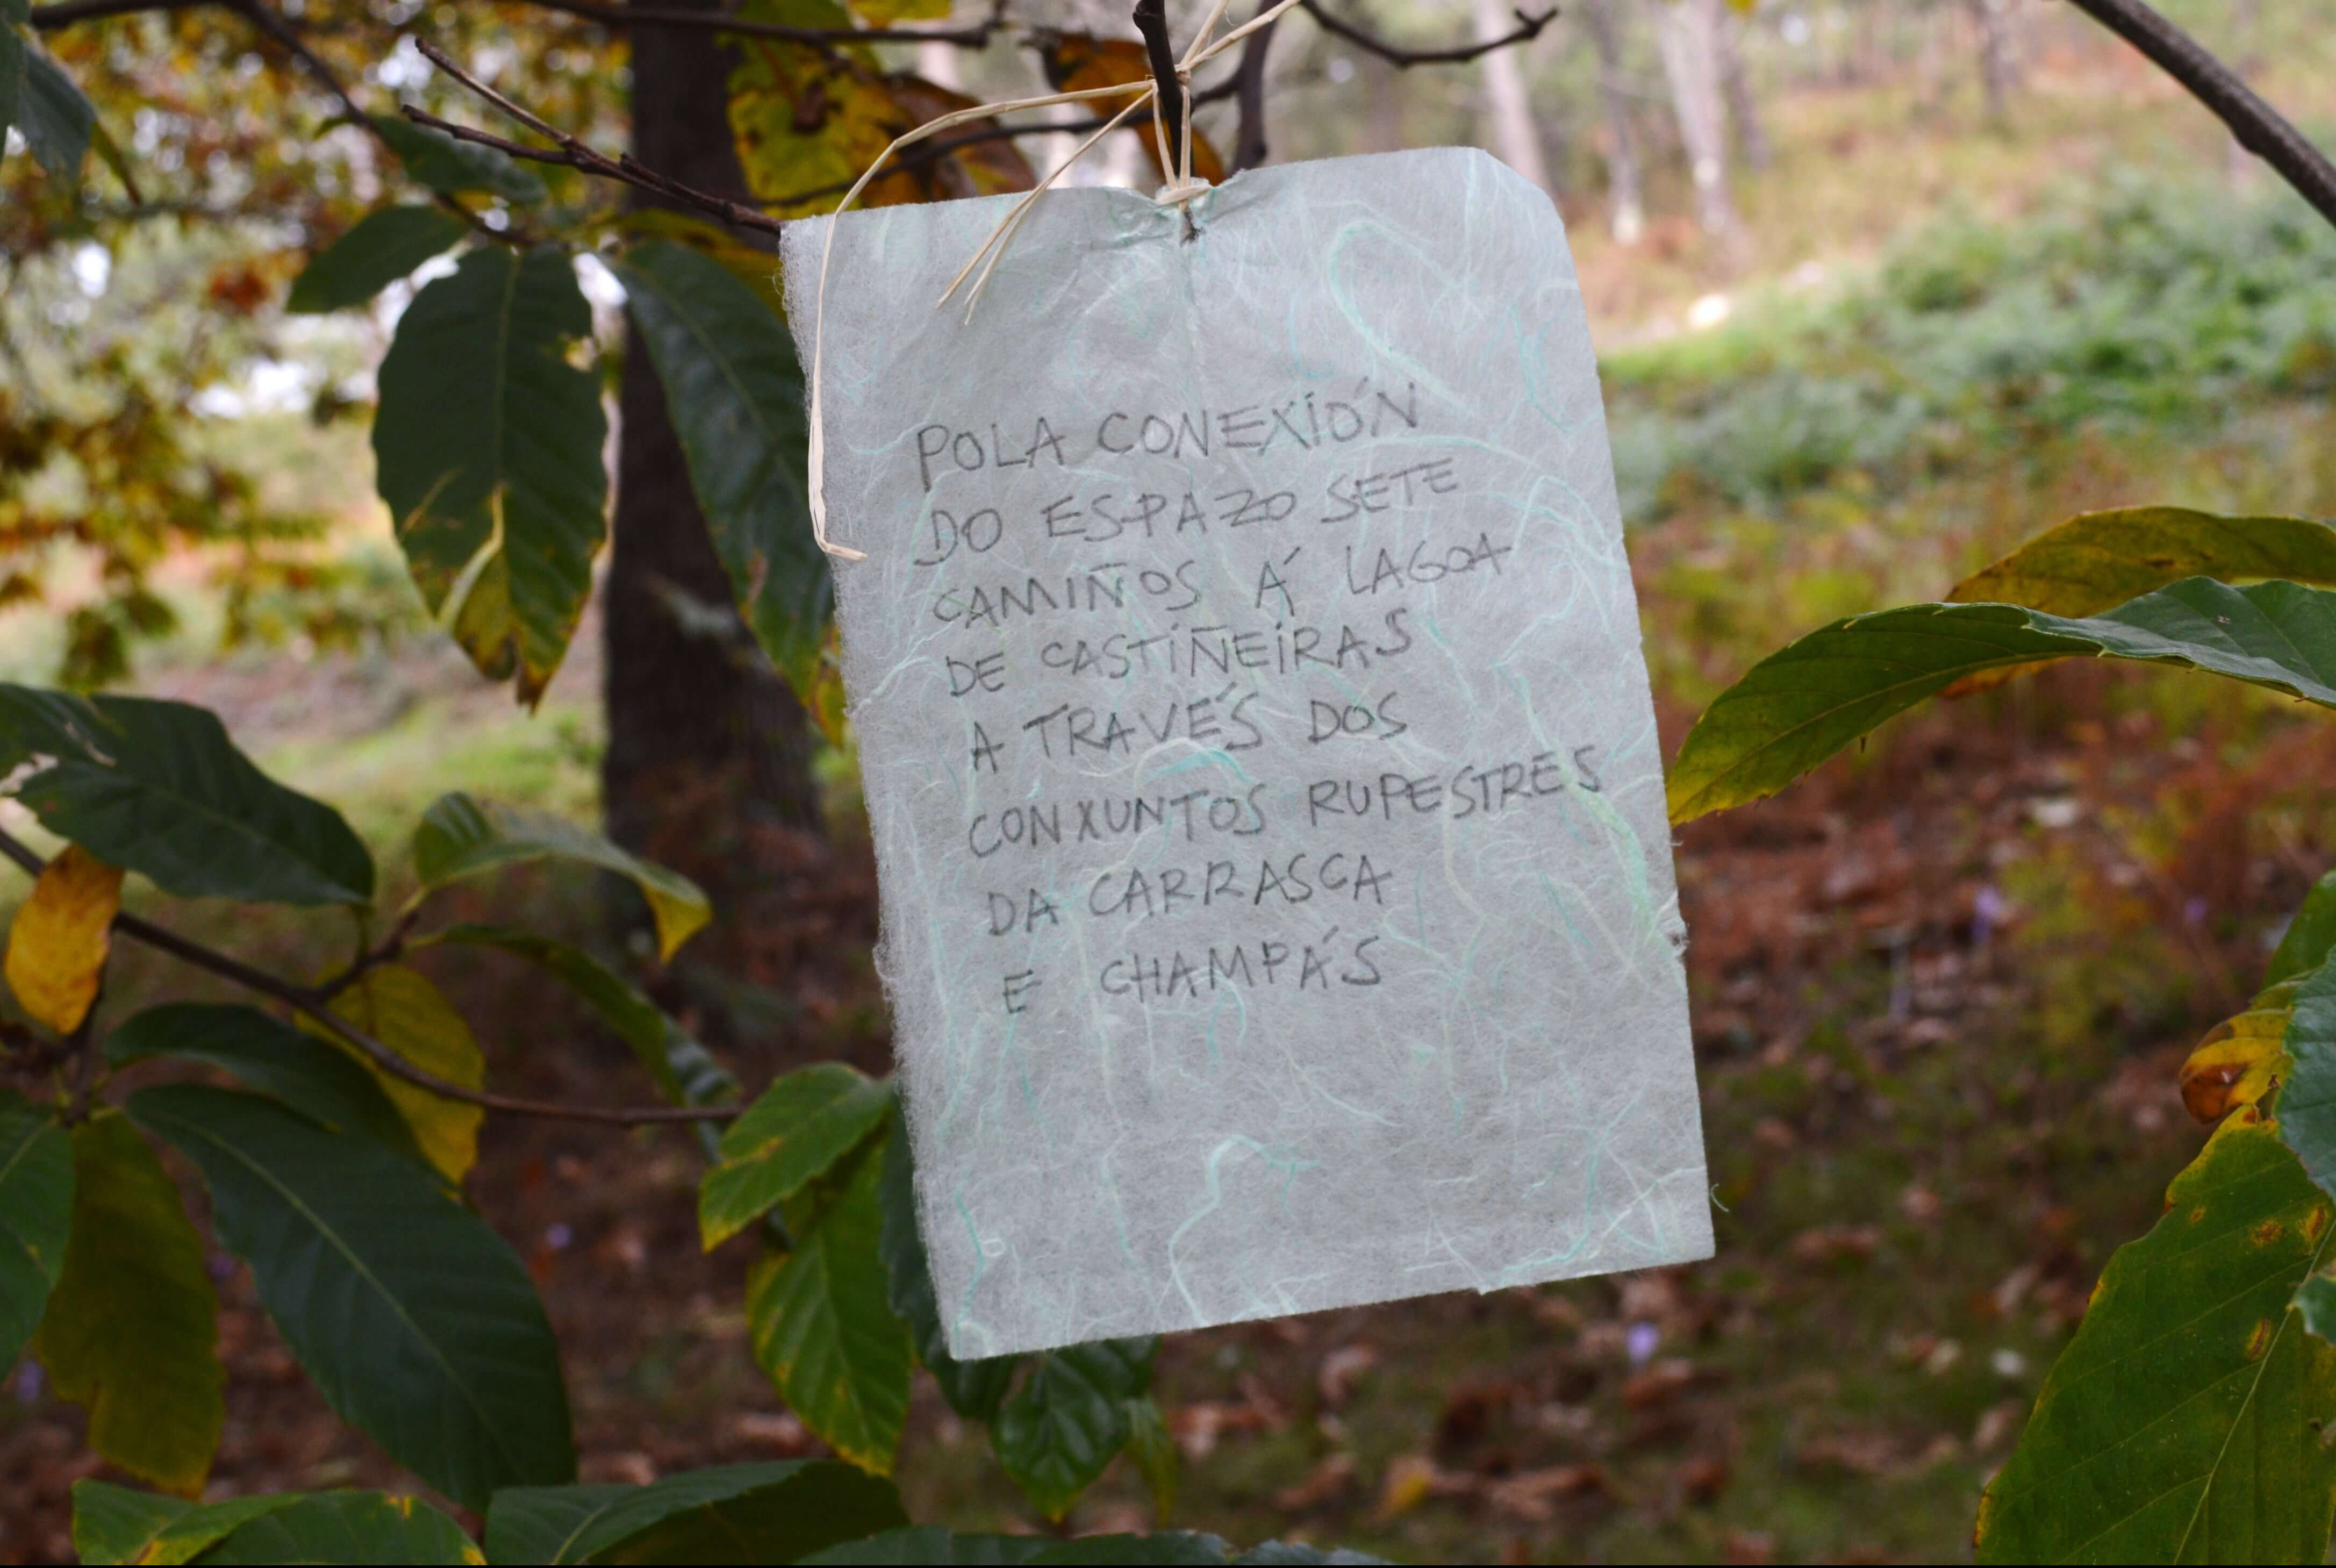 POLA CONEXIÓN
DO ESPAZO SETE
CAMIÑOS Á LAGOA
DE CASTIÑEIRAS
A TRAVÉS DOS
CONXUNTOS RUPESTRES
DA CARRASCA
E CHAMPÁS